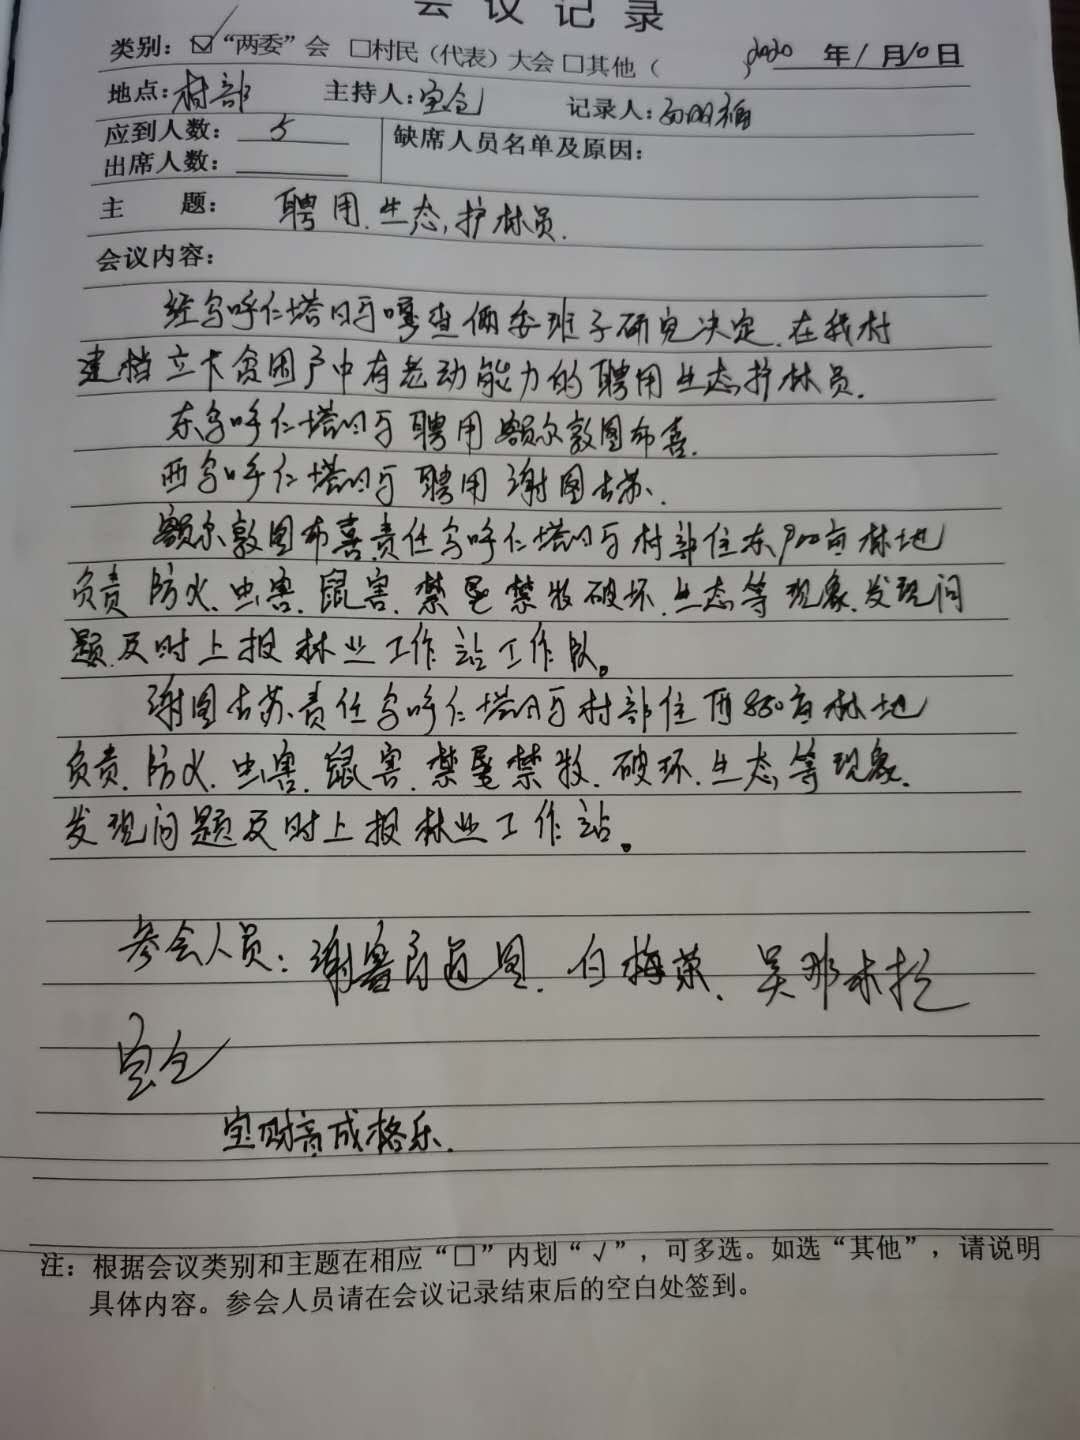 会议记录
类别：☑“两委”会 □村民（代表）大会 □其他（ ）2020 年 1 月 10 日
地点：村部 主持人：宝仓 记录人：
应到人数： 5 缺席人员名单及原因：
出席人数：
主 题： 聘用.生态,护林员.
会议内容：
经乌呼仁塔日亏嘎查俩委班子研究决定.在我村
建档立卡贫困户中有老动能力的聘用生态护林员.
东乌呼仁塔日亏聘用额尔敦图布喜.
西乌呼仁塔日亏聘用谢图古苏.
额尔敦图布喜责任乌呼仁塔日亏村部住东900亩林地
负责 防火.虫害.鼠害.禁垦禁牧破坏.生态等现象.发现问
题.及时上报林业工作站工作队。
谢图古苏责任乌呼仁塔日亏村部住西850亩林地
负责.防火.虫害.鼠害.禁垦禁牧.破坏.生态等现象.
发现问题及时上报林业工作站。
参会人员：谢 图.白梅荣.吴那木拉
宝仓
宝 成格乐.
注：根据会议类别和主题在相应“□”内划“√”，可多选。如选“其他”，请说明
具体内容。参会人员请在会议记录结束后的空白处签到。